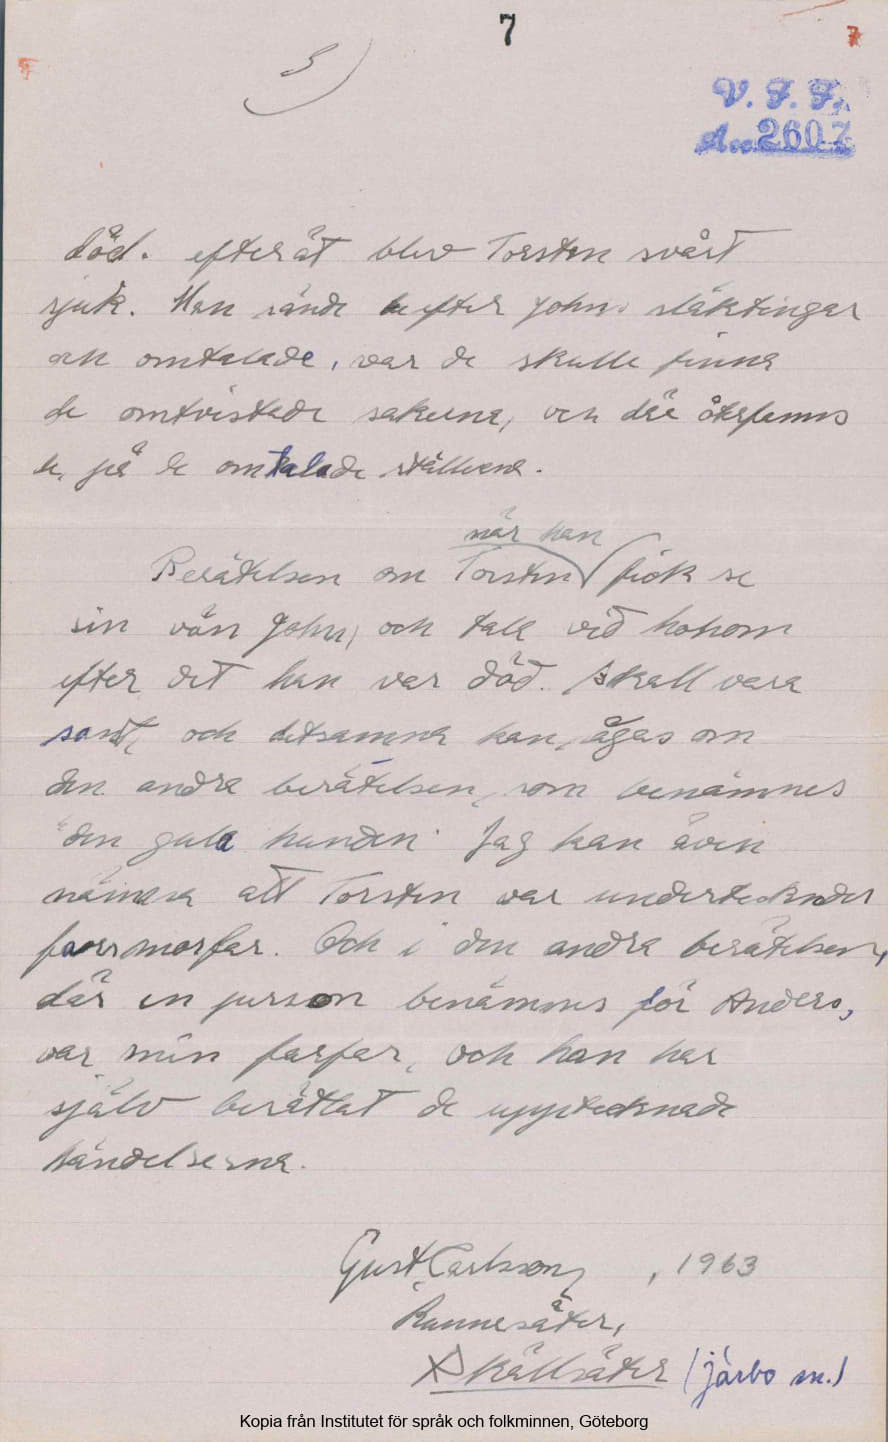 7
7
5)
V. F. F.
Acc. 2607
död. efteråt blev Torsten svårt
sjuk. Han sände efter Johns släktingar
och omtalade, var de skulle finna
de omtvistade sakerna, och där återfanns
de, på de omtalade ställena.
när han
Berätelsen om Torsten fick se
sin vän John, och tala vid honom
efter det han var död. skall vara
sant, och detsamma kan, ägas om
den andra berätelsen, som benämnes
"den gula hunden" Jag kan även
nämna att Torsten var undertecknades
farsmorfar. Och i den andra berätelsen,
där en person benämnes för Anders,
var min farfar, och han har
själv berättat de upptecknade
händelserna.
Gust. Carlsson, 1963
Runnesäter,
Källsäter (järbo sn.)
Kopia från Institutet för språk och folkminnen, Göteborg